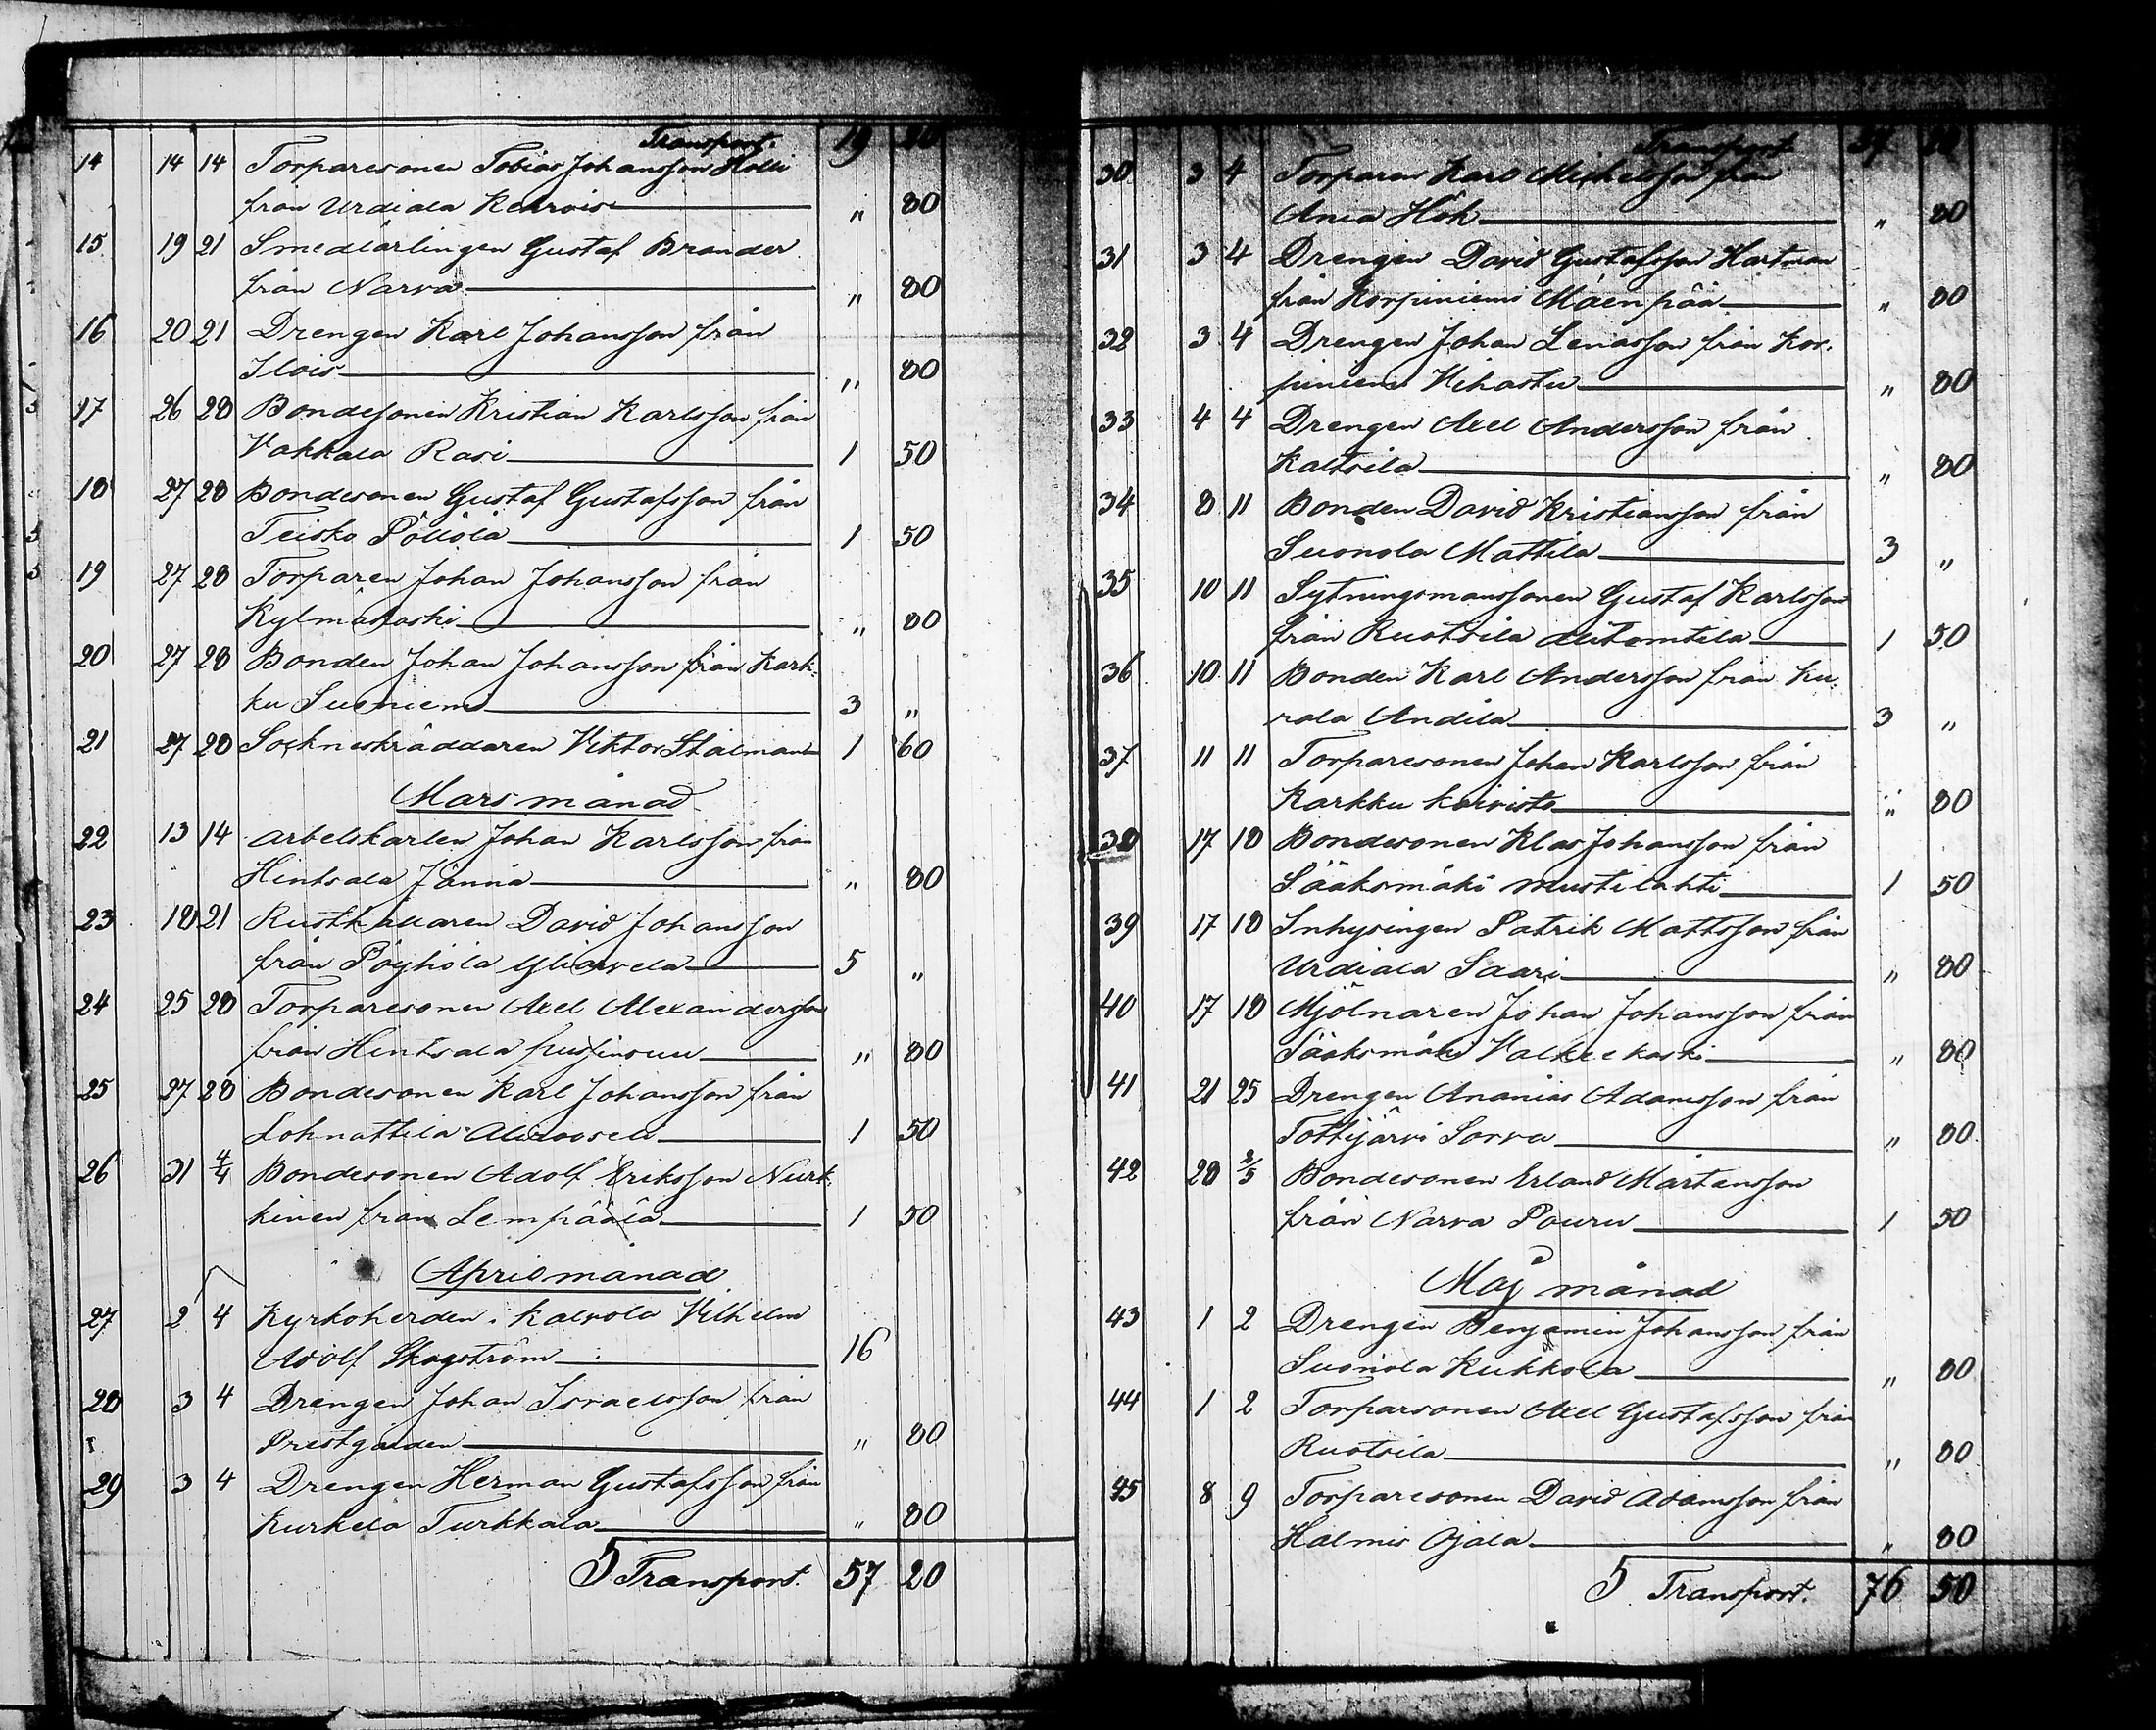 Transport. 19 80
14 14 14 Torparesonen Tobias Johansson Holli
från Urdiala Kehrois „ 80
15 19 21 Smedlärlingen Gustaf Brander
från Narva „ 80
16 20 21 Drengen Karl Johansson från
Ilois „ 80
17 26 28 Bondesonen Kristian Karlsson från
Vakkala Rasi 1 50
18 27 28 Bondesonen Gustaf Gustafsson från
Teisko Pöllölä 1 50
19 27 28 Torparen Johan Johansson från
Kylmäkoski „ 80
20 27 28 Bonden Johan Johansson från Kark-
ku Suoniemi 3 „
21 27 28 Sockneskräddaren Viktor Stålman 1 60
Mars månad
22 13 14 Arbetskarlen Johan Karlsson från
Hintsala Jänniä „ 80
23 18 21 Rusthållaren David Johansson
från Pöyhölä Yliarvela 5 „
24 25 28 Torparesonen Axel Alexandersson
från Hintsala „ 80
25 27 28 Bondesonen Karl Johansson från
Lohnattila Aliroosela 1 50
26 31 4/4 Bondesonen Adolf Eriksson Nurk-
kinen från Lempäälä 1 50
April månad
27 2 4 Kyrkoherden i Kalvola Vilhelm
Adolf Skogström 16
28 3 4 Drengen Johan Israelsson från
Prestgården „ 80
29 3 4 Drengen Herman Gustafsson från
Kurkela Turkkala „ 80
Transport. 57 20
Transport 57 20
30 3 4 Torparen Karl Mickelsson från
Ania Hök „ 80
31 3 4 Drengen David Gustafsson Hartman
från Korpiniemi Mäenpää „ 80
32 3 4 Drengen Johan Leniasson från Kor-
piniemi Vihastu „ 80
33 4 4 Drengen Axel Andersson från
Kaltsila „ 80
34 8 11 Bonden David Kristiansson från
Suonola Mattila 3 „
35 10 11 Sytningsmanssonen Gustaf Karlsson
från Ruotsila Alitomtila 1 50
36 10 11 Bonden Karl Andersson från Ku-
rala Andila 3 „
37 11 11 Torparesonen Johan Karlsson från
Karkku Koivisto „ 80
38 17 18 Bondesonen Klas Johansson från
Sääksmäki Mustilahti 1 50
39 17 18 Inhysingen Patrik Mattsson från
Urdiala Saari „ 80
40 17 18 Mjölnaren Johan Johansson från
Sääksmäki Valkeekoski „ 80
41 21 25 Drengen Ananias Adamsson från
Tottijärvi Sorva „ 80
42 28 2/5 Bondesonen Erland Mårtensson
från Narva Pouru 1 50
Maj månad
43 1 2 Drengen Benjamin Johansson från
Suonola Kukkola „ 80
44 1 2 Torparsonen Axel Gustafsson från
Ruotsila „ 80
45 8 9 Torparesonen David Adamsson från
Halmis Ojala „ 80
Transport. 76 50